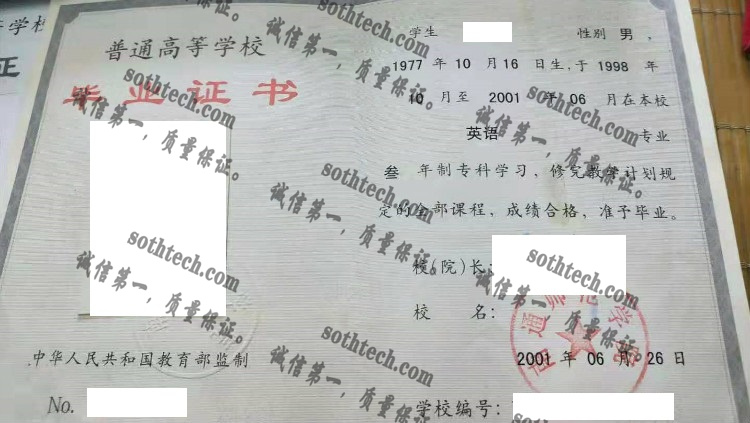 等学校
正
普通高等学校
毕业证书
中华人民共和国教育部监制
No.
学生 性别 男 ,
1977 年 10 月 16 日生,于 1998 年
10 月至 2001 年 06 月在本校
英语 专业
叁 年制专科学习, 修完教学计划规
定的全部课程, 成绩合格, 准予毕业。
校(院)长:
校 名:
2001 年 06 月 26 日
学校编号:
sothtech.com
诚信第一, 质量保证。
sothtech.com
诚信第一, 质量保证。
sothtech.com
诚信第一, 质量保证。
sothtech.com
诚信第一, 质量保证。
sothtech.com
诚信第一, 质量保证。
sothtech.com
诚信第一, 质量保证。
sothtech.com
诚信第一, 质量保证。
sothtech.com
诚信第一, 质量保证。